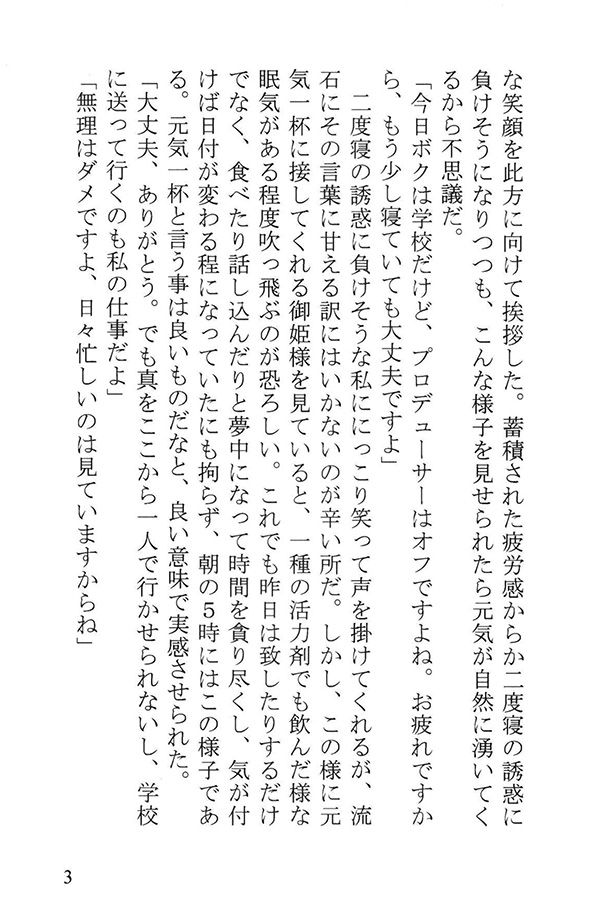 な笑顔を此方に向けて挨拶した。蓄積された疲労感からか二度寝の誘惑に
負けそうになりつつも、こんな様子を見せられたら元気が自然に湧いてく
るから不思議だ。
「今日ボクは学校だけど、プロデューサーはオフですよね。お疲れですか
ら、もう少し寝ていても大丈夫ですよ」
二度寝の誘惑に負けそうな私ににっこり笑って声を掛けてくれるが、流
石にその言葉に甘える訳にはいかないのが辛い所だ。しかし、この様に元
気一杯に接してくれる御姫様を見ていると、一種の活力剤でも飲んだ様な
眠気がある程度吹っ飛ぶのが恐ろしい。これでも昨日は致したりするだけ
でなく、食べたり話し込んだりと夢中になって時間を貪り尽くし、気が付
けば日付が変わる程になっていたにも拘らず、朝の５時にはこの様子であ
る。元気一杯と言う事は良いものだなと、良い意味で実感させられた。
「大丈夫、ありがとう。でも真をここから一人で行かせられないし、学校
に送って行くのも私の仕事だよ」
「無理はダメですよ、日々忙しいのは見ていますからね」
3